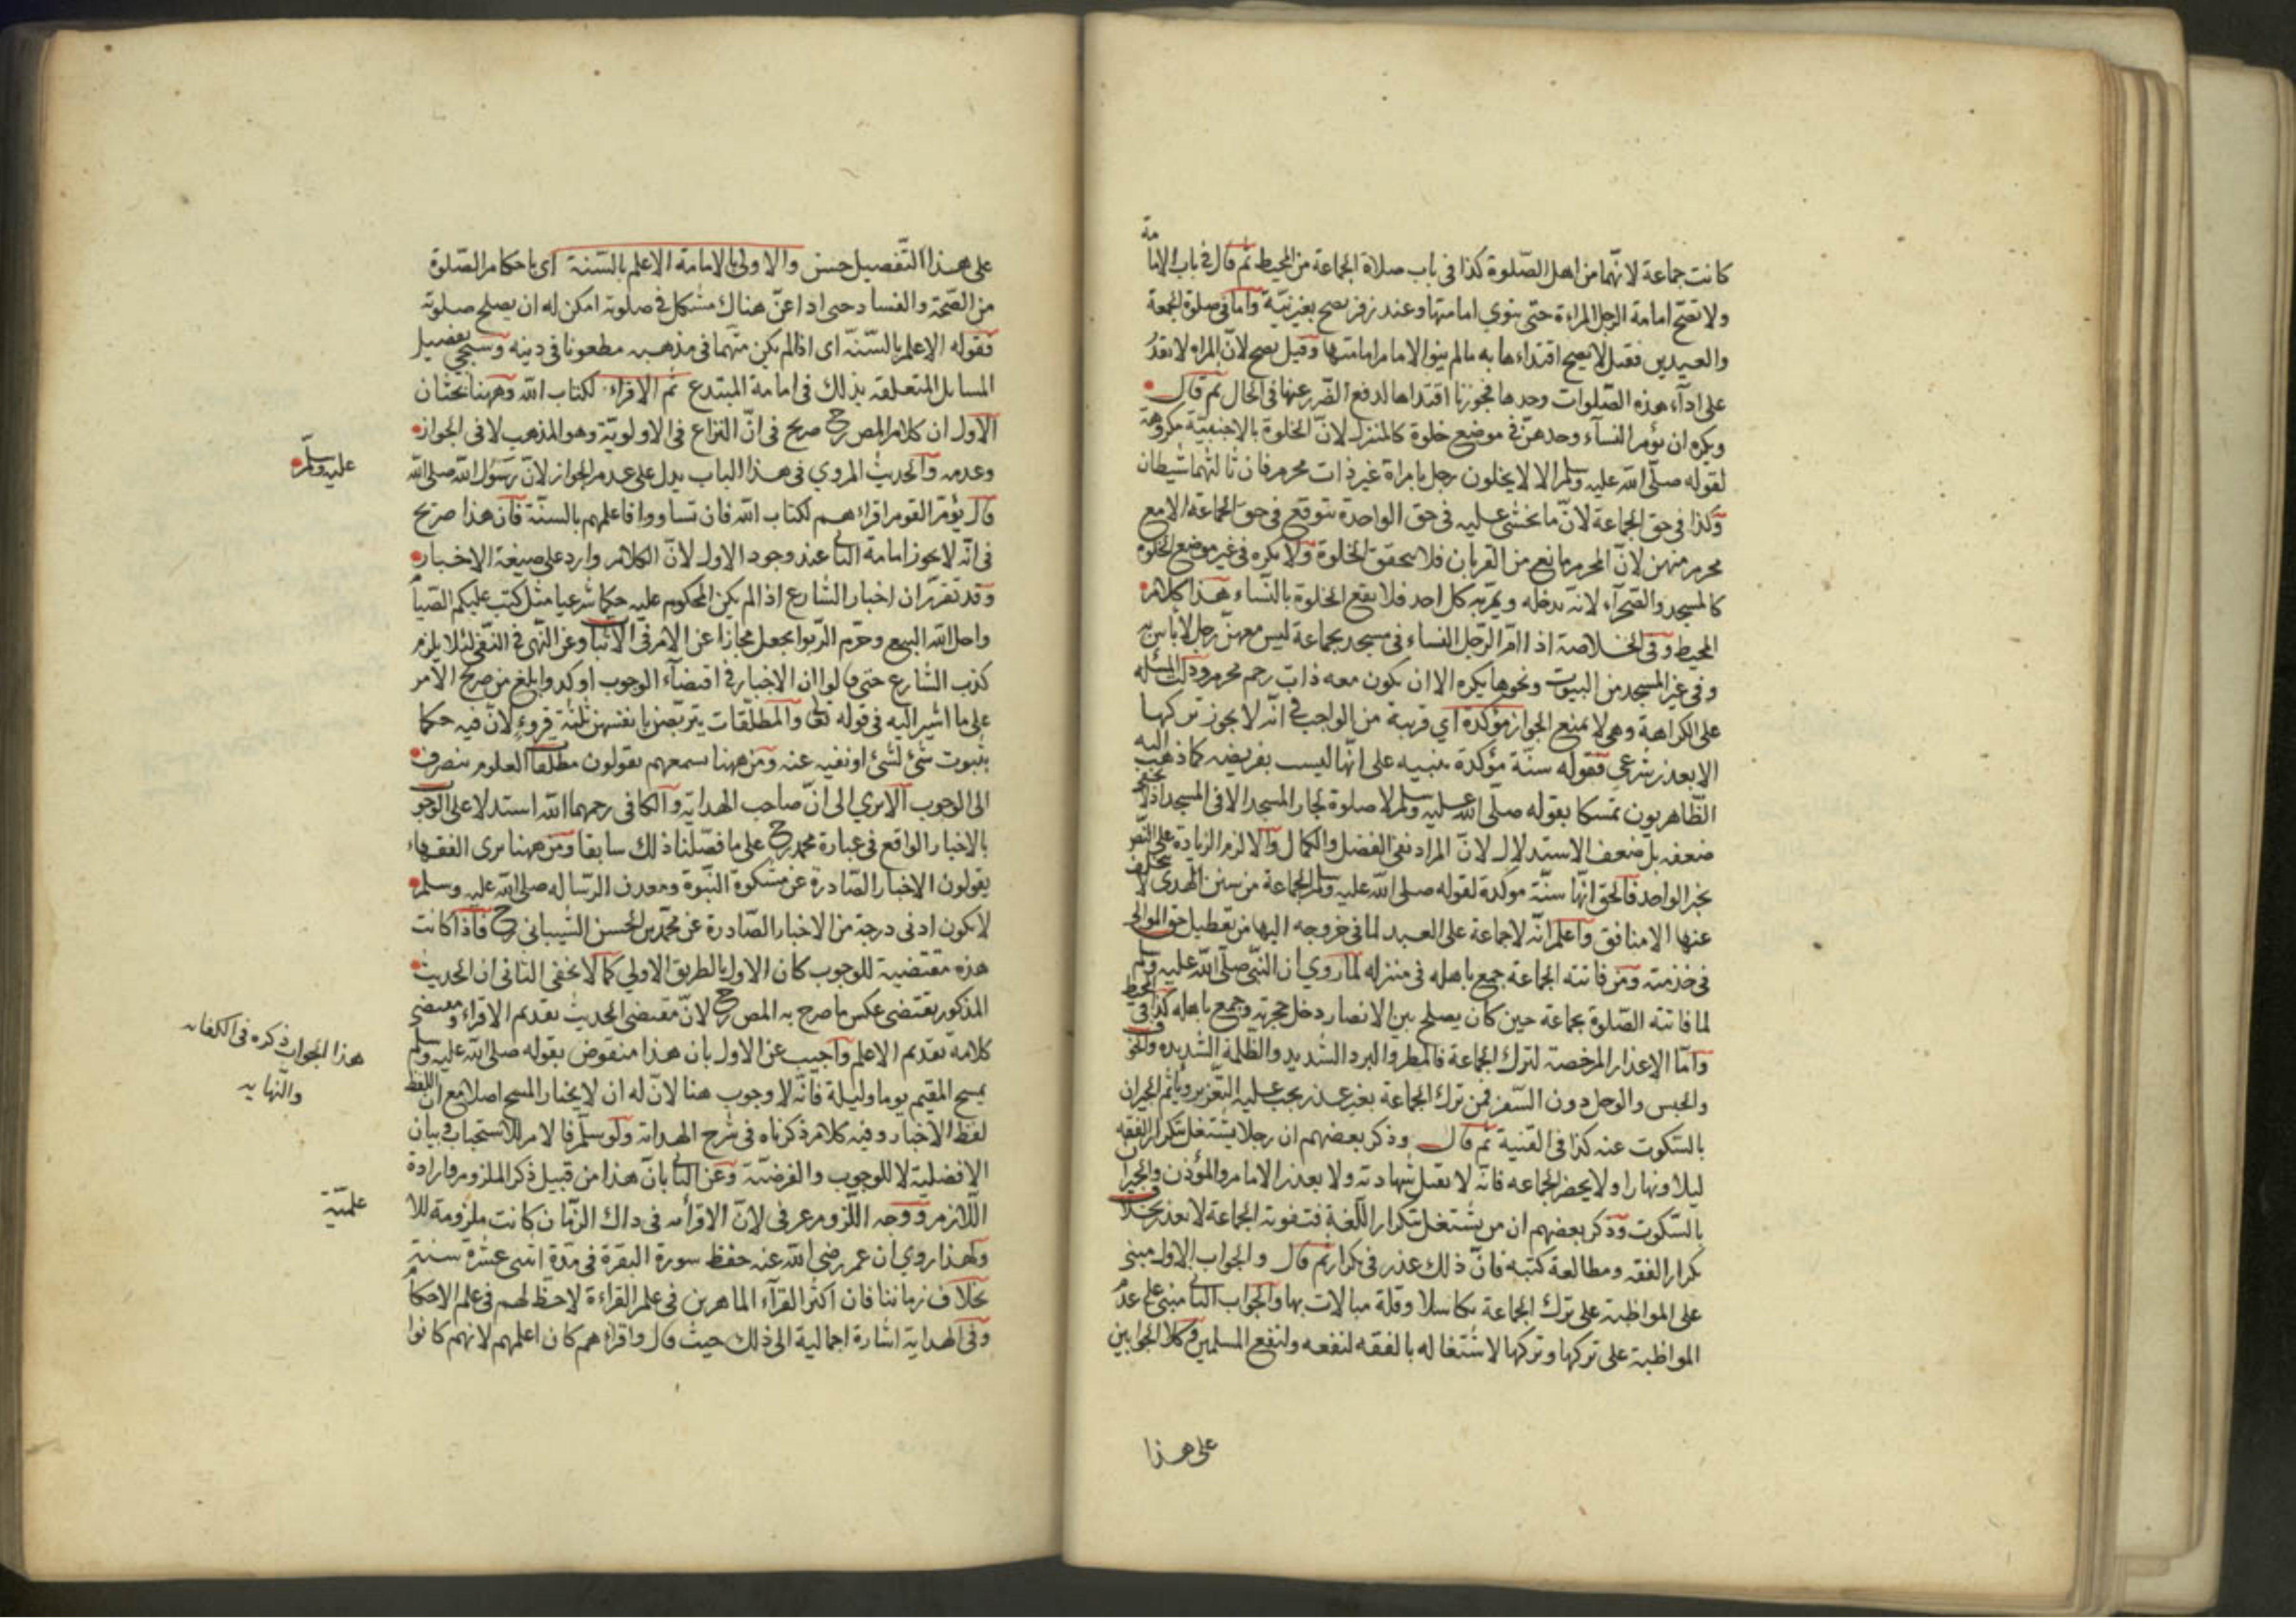 كانت جماعة لانهما من اهل الصلوة كذا فى باب صلاة الجماعة من المحيط ثم قال فى باب الامامة
ولا تصح امامة الرجل المراءة حتى ينوي امامتها وعند زفر يصح بغير نيّة واما فى صلوة الجمعة
والعيدين فقيل لا يصح اقتداءها به مالم ينو الامام امامتها وقيل يصح لانّ المراه لا تقدرُ
على ادآء هذه الصّلوات وحدها فجوزنا اقتداها لدفع الضّرر عنها فى الحال ثم قال
ويكره ان يؤم النسآء وحدهنّ فى موضع خلوة كالمنزل لانّ الخلوة بالاجنبيّة مكروهة
لقوله صلّى الله عليه وسلم الا لا يخلون رجل بامراة غير ذات محرم فان ثالثهما شيطان
وكذا فى حق الجماعة لانّ ما يخشى عليه فى حق الواحدة يتوقع فى حق الجماعة الا مع
محرم منهن لانّ المحرم مانع من القربان فلا يتحقق الخلوة ولا يكره فى غير موضع الخلوة
كالمسجد والصّحرآء لانه يدخله ويمرّ به كل احد فلا يقع الخلوة بالنّساء هذا كلام
المحيط وفى الخلاصة اذا امّ الرّجل النساء فى مسجد بجماعة ليس معهنّ رجل لا باس به
وفى غير المسجد من البيوت ونحوها يكره الا ان يكون معه ذات رحم محرم ودلت المسئله
على الكراهة وهى لا يمنع الجواز مؤكدة اي قريبة من الواجب فى انّه لا يجوز تركها
الا بعذر شرعي فقوله سنّة مؤكدة تنبيه على انّها ليست بفريضه كما ذهب اليه
الظّاهريون تمسكا بقوله صلّى الله عليه وسلم لا صلوة لجار المسجد الا فى المسجد اذ لا يخفى
ضعفه بل ضعف الاستدلال لانّ المراد نفى الفضل والكمال والا لزم الزيادة على النّص
بخبر الواحد فالحق انّها سنّة موكدة لقوله صلى الله عليه وسلم الجماعة من سنن الهدى لا يتخلف
عنها الا منافق واعلم انّه لا جماعة على العبد لما فى خروجه اليها من تعطيل حق الموالى
فى خدمته ومن فاتته الجماعة جمع باهله فى منزله لما روي ان النّبى صلّى الله عليه وسلم
لما فاتته الصّلوة بجماعة حين كان يصلح بين الانصار دخل حجرته وجمع باهله كذا فى المحيط
وامّا الاعذار المرخصة لترك الجماعة فالمطر والبرد الشديد والظلمة الشّديده والخوف
والحبس والوحل دون السّفر فمن ترك الجماعة بغير عذر يجب عليه التّعزير ويأثم الجيران
بالسّكوت عنه كذا فى القنية ثم قال وذكر بعضهم ان رجلا يشتغل بتكرار الفقه
ليلا ونهارا ولا يحضر الجماعه فانّه لا تقبل شهادته ولا يعذر الامام والمؤذن والجيران
بالسّكوت وذكر بعضهم ان من يشتغل بتكرار اللّغة فتفوته الجماعة لا يعذر بخلاف
تكرار الفقه ومطالعة كتبه فانّ ذلك عذر فى تكرار ثم قال والجواب الاول مبنى
على المواظبة على ترك الجماعة تكاسلا وقلة مبالات بها والجواب الثانى مبنى على عدم
المواظبة على تركها وتركها لاشتغاله بالفقه لنفعه ولنفع المسلمين وكلا الجوابين
على هذا
على هذا التّفصيل حسن والاولى بالامامة الاعلم بالسّنة اى باحكام الصّلوة
من الصّحة والفساد حتى اذا عنّ هناك مشكل فى صلوته امكن له ان يصلح صلوته
فقوله الاعلم بالسّنّة اى اذا لم يكن متّهما فى مذهبه مطعونا فى دينه وسيجئ تفصيل
المسايل المتعلقه بذلك فى امامة المبتدع ثم الاقراء لكتاب الله وههنا بحثان
الاول ان كلام المص رح صريح فى انّ النزاع فى الاولويّة وهو المذهب لا فى الجواز
وعدمه والحديث المروي فى هذا الباب يدل على عدم الجواز لانّ رسول الله صلى الله
عليه وسلّم
قال يؤمّ القوم اقراءهم لكتاب الله فان تساووا فاعلمهم بالسنّة فان هذا صريح
فى انّه لا يجوز امامة الثانى عند وجود الاول لانّ الكلام وارد على صيغة الاخبار
وقد تقرّر ان اخبار الشارع اذا لم يكن المحكوم عليه حكما شرعيا مثل كتب عليكم الصّيام
واحل الله البيع وحرّم الرّبوا يجعل مجازا عن الامر فى الاثبات وعن النّهى فى النّفى لئلا يلزم
كذب الشّارع حتى قالوا ان الاخبار فى اقتضآء الوجوب اوكد وابلغ من صريح الامر
على ما اشير اليه فى قوله تعالى والمطلّقات يتربّصن بانفسهنّ ثلثة قروء لانّ فيه حكما
بثبوت شئ لشئ او نفيه عنه ومن ههنا تسمعهم يقولون مطلقا العلوم ينصرف
الى الوجوب الا يرى الى انّ صاحب الهدايه والكافى رحمهما الله استدلا على الوجوب
بالاخبار الواقع فى عبارة محمد رح على ما فصّلنا ذلك سابقا ومن ههنا يرى الفقهاء
يقولون الاخبار الصّادرة عن مشكوة النّبوة ومعدن الرّساله صلى الله عليه وسلم
لا يكون ادنى درجة من الاخبار الصّادرة عن محمّد بن الحسن الشّيبانى رح فاذا كانت
هذه مقتضية للوجوب كان الاول بالطريق الاولى كما لا يخفى الثانى ان الحديث
المذكور يقتضى عكس ما صرح به المص رح لانّ مقتضى الحديث تقديم الاقراء ومقتضى
كلامه تقديم الاعلم واجيب عن الاول بان هذا منقوض بقوله صلى الله عليه وسلم
هذا الجواب ذكره فى الكفايه
والنّهايه
يمسح المقيم يوما وليلة فانّه لا وجوب هنا لانّ له ان لا يختار المسح اصلا مع انّ اللفظ
لفظ الاخبار وفيه كلام ذكرناه فى شرح الهدايه ولو سلّم فالامر للاستحباب وبيان
الافضلية لا للوجوب والفرضيّة وعن الثانى بانّ هذا من قبيل ذكر الملزوم وارادة
اللّازم ووجه اللّزوم عرفى لانّ الاقرأيه فى ذاك الزّمان كانت ملزومة للا
علميّة
ولهذا روي ان عمر رضى الله عنه حفظ سورة البقرة فى مدّة اثنى عشرة سنة
بخلاف زماننا فان اكثر القرآء الماهرين فى علم القراءة لا حظّ لهم فى علم الاحكام
وفى الهداية اشارة اجمالية الى ذلك حيث قال واقراءهم كان اعلمهم لانهم كانوا